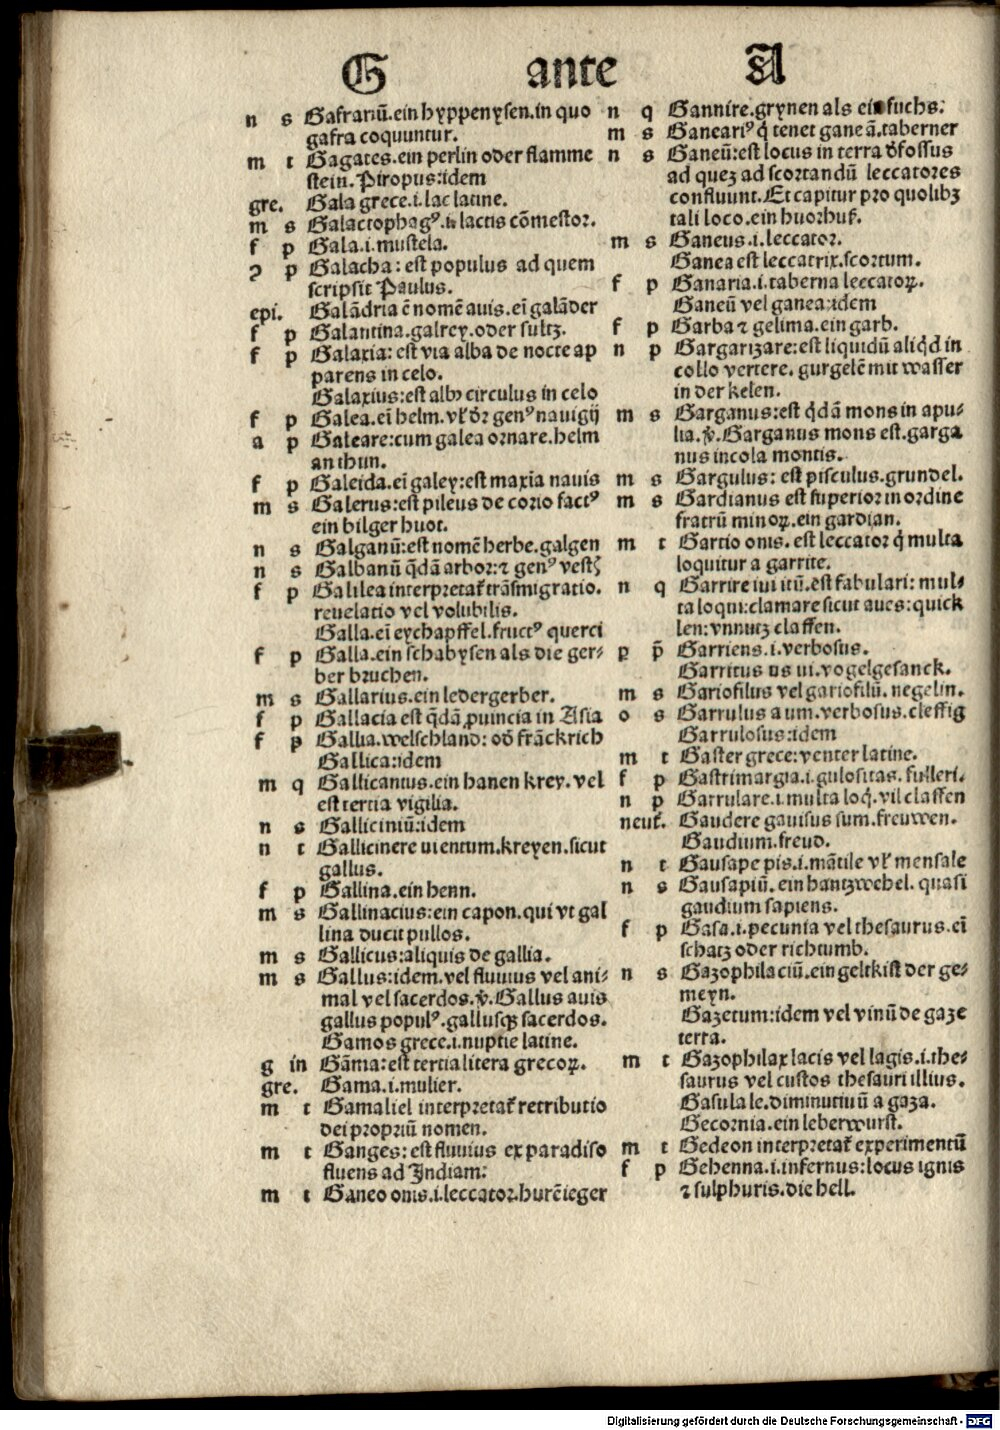 G ante A
n s Gafranū.ein hyppenysen.in quo
gafra coquuntur.
m t Gagates.ein perlin oder flamme
stein. Piropus:idem
gre. Gala grece.i.lac latine.
m s Galactophagꝰ.i. lactis cōmestor.
f p Gala.i.mustela.
ꝯ p Galacha: est populus ad quem
scripsit Paulus.
epi. Galādria ē nomē auis.eī galāder
f p Galantina.galrey.oder sultz.
f p Galaxia: est via alba de nocte ap
parens in celo.
Galaxius:est albꝰ circulus in celo
f p Galea.eī helm.vl' dr̄ genꝰ nauigij
a p Galeare:cum galea ornare.helm
an thun.
f p Galeida.eī galey:est maxīa nauis
m s Galerus:est pileus de corio factꝰ
ein bilger huot.
n s Galganū:est nomē herbe.galgen
n s Galbanū q̄dā arbor:⁊ genꝰ vestꝭ
f p Galilea interpretat̄ trāsmigratio.
reuelatio vel volubilis.
Galla.eī eychapffel.fructꝰ querci
f p Galla.ein schabysen als die ger⸗
ber bruchen.
m s Gallarius.ein ledergerber.
f p Gallacia est q̄dā ꝓuincia in Asia
f p Gallia.welschland: od̄ frāckrich
Gallica:idem
m q Gallicantus.ein hanen krey. vel
est tertia vigilia.
n s Galliciniū:idem
n t Gallicinere ui entum.kreyen.sicut
gallus.
f p Gallina.ein henn.
m s Gallinacius:ein capon.qui vt gal
lina ducit pullos.
m s Gallicus:aliquis de gallia.
m s Gallus:idem.vel fluuius vel ani⸗
mal vel sacerdos.v̄.Gallus auis
gallus populꝰ.gallusqꝫ sacerdos.
Gamos grece.i.nuptie latine.
g in Gāma:est tertia litera grecoꝝ.
gre. Gama.i.mulier.
m t Gamaliel interpretat̄ retributio
dei propriū nomen.
m t Ganges: est fluuius ex paradiso
fluens ad Indiam:
m t Ganeo onis.i.leccator.hurē ieger
n q Gannire.grynen als ein fuchs:
m s Ganeariꝰ q̄ tenet gane ā.taberner
n s Ganeū:est locus in terra d̄fossus
ad quez ad scortandū leccatores
confluunt.Et capitur pro quolibꝫ
tali loco.ein huorhuß.
m s Ganeus.i.leccator.
Ganea est leccatrix.scortum.
f p Ganaria.i.taberna leccatoꝝ.
Ganeū vel ganea:idem
f p Garba ⁊ gelima.ein garb.
n p Gargarizare:est liquidū aliq̄d in
collo vertere. gurgelē mit wasser
in der kelen.
m s Garganus:est q̄dā mons in apu⸗
lia.v̄.Garganus mons est.garga
nus incola montis.
m s Gargulus: est pisculus.grundel.
m s Gardianus est superior in ordine
fratrū minoꝝ.ein gardian.
m t Gartio onis. est leccator q̄ multa
loquitur a garrite.
n q Garrire iui itū.est fabulari: mul⸗
ta loqui:clamare sicut aues:quick
len:vnnutz claffen.
p p̄ Garriens.i.verbosus.
Garritus us ui.vogelgesanck.
m s Gariofilus vel gariofilū. negelin.
o s Garrulus a um.verbosus.cleffig
Garrulosus:idem
m t Gaster grece:venter latine.
f p Gastrimargia.i.gulositas. fulleri.
n p Garrulare.i.multa loq̄.vil claffen
neut̄. Gaudere gauisus sum.freuwen.
Gaudium.freud.
n t Gausape pis.i.mātile vl' mensale
n s Gausapiū. ein hantzwehel. quasi
gaudium sapiens.
f p Gasa.i.pecunia vel thesaurus.eī
schatz oder richtumb.
n s Gazophilaciū.ein geltkist der ge⸗
meyn.
Gazetum:idem vel vinū de gaze
terra.
m t Gazophilax lacis vel lagis.i.the⸗
saurus vel custos thesauri illius.
Gasula le.diminutiuū a gaza.
Gecornia.ein leberwurst.
m t Gedeon interpretat̄ experimentū
f p Gehenna.i.infernus:locus ignis
⁊ sulphuris.die hell.
Digitalisierung gefördert durch die Deutsche Forschungsgemeinschaft - DFG